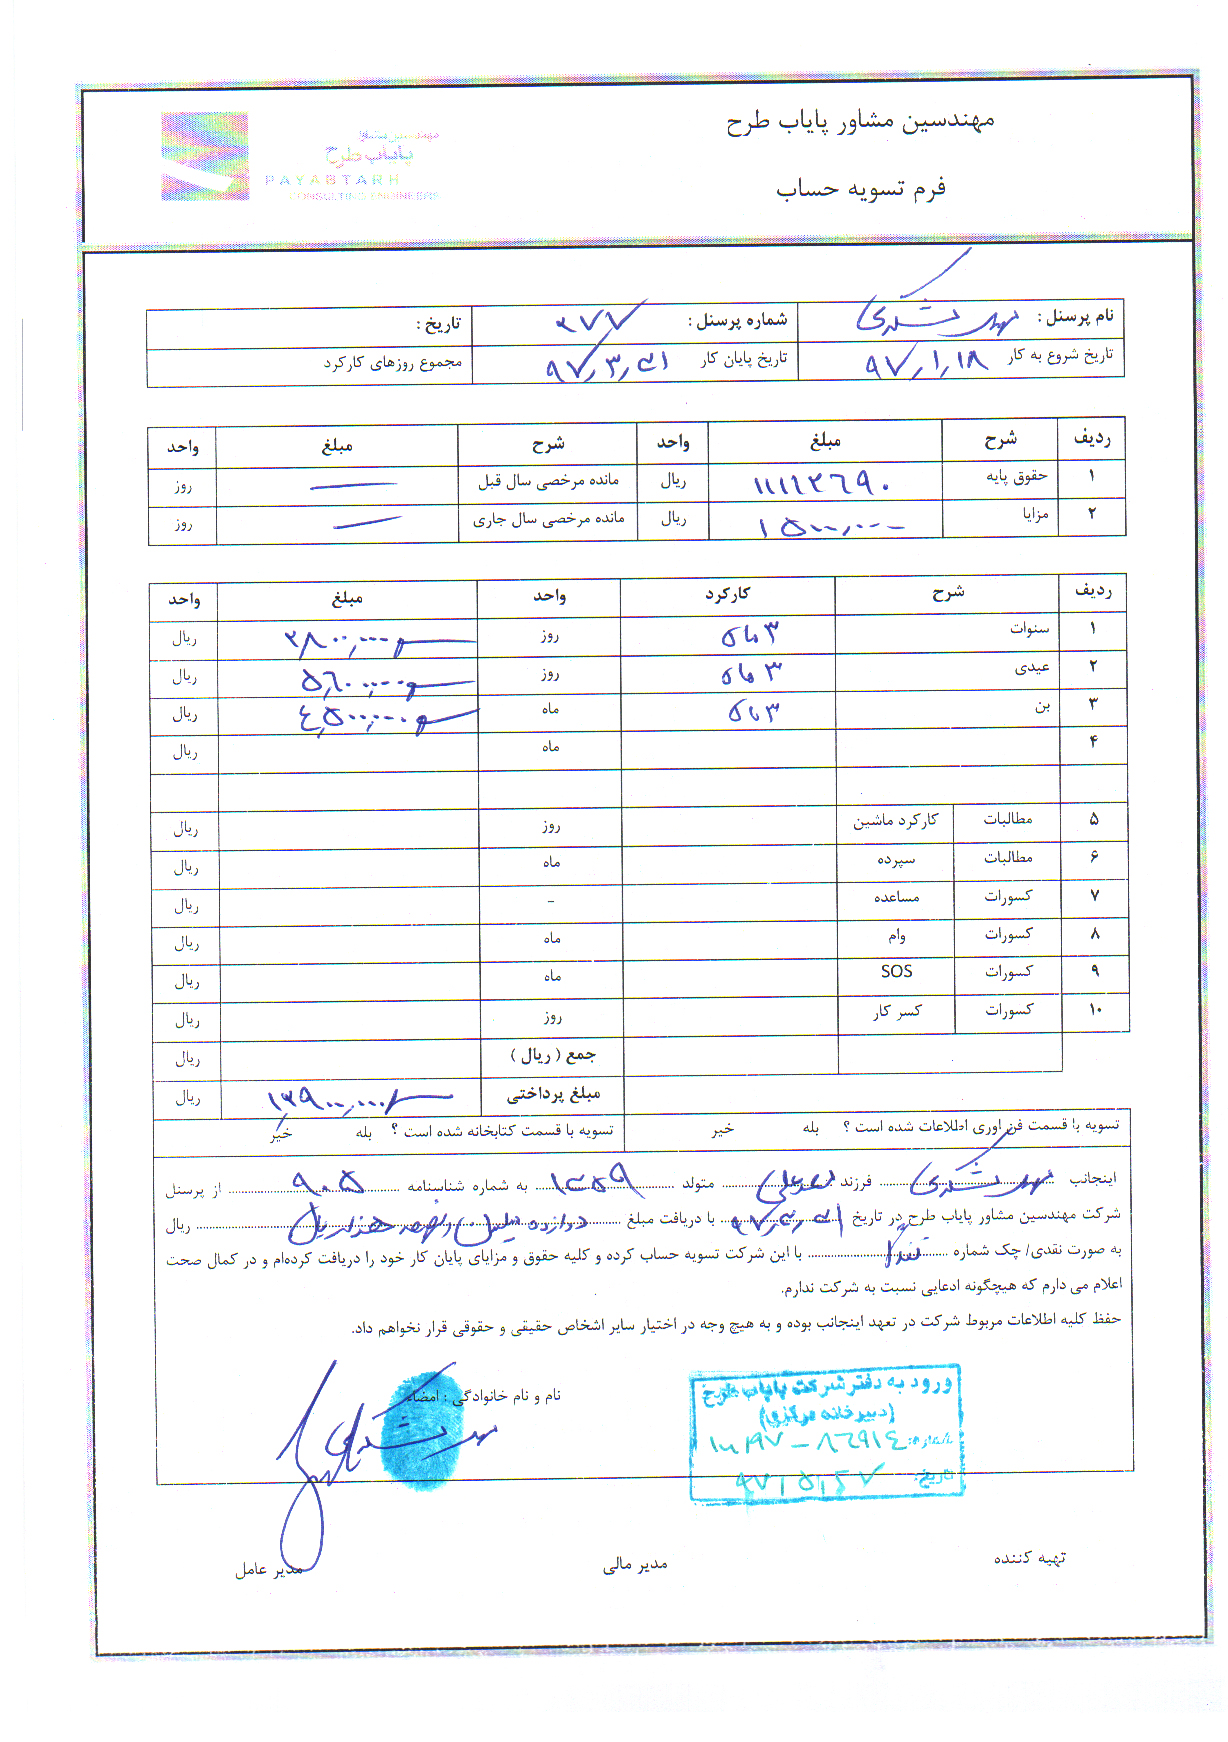 مهندسین مشاور پایاب طرح
فرم تسویه حساب
مهندسین مشاور
پایاب طرح
PAYABTARH
CONSULTING ENGINEERS
نام پرسنل : مهدی شماره پرسنل : ۲۷۷ تاریخ :
تاریخ شروع به کار ۹۷,۱,۱۸ تاریخ پایان کار ۹۷,۳,۳۱ مجموع روزهای کارکرد
ردیف شرح مبلغ واحد شرح مبلغ واحد
۱ حقوق پایه ۱۱۱۱۲۶۹۰ ریال مانده مرخصی سال قبل — روز
۲ مزایا ۱۵۰۰,۰۰۰ ریال مانده مرخصی سال جاری — روز
ردیف شرح کارکرد واحد مبلغ واحد
۱ سنوات ۳ ماه روز ۲,۸۰۰,۰۰۰ ریال
۲ عیدی ۳ ماه روز ۵,۶۰۰,۰۰۰ ریال
۳ بن ۳ ماه ماه ۴,۵۰۰,۰۰۰ ریال
۴ ماه ریال
۵ مطالبات کارکرد ماشین روز ریال
۶ مطالبات سپرده ماه ریال
۷ کسورات مساعده - ریال
۸ کسورات وام ماه ریال
۹ کسورات SOS ماه ریال
۱۰ کسورات کسر کار روز ریال
جمع ( ریال ) ریال
مبلغ پرداختی ۱۲,۹۰۰,۰۰۰ ریال
تسویه با قسمت فن اوری اطلاعات شده است ؟ بله خیر تسویه با قسمت کتابخانه شده است ؟ بله خیر
اینجانب مهدی فرزند متولد ۱۳۵۹ به شماره شناسنامه ۹۰۵ از پرسنل
شرکت مهندسین مشاور پایاب طرح در تاریخ ۹۷,۳,۳۱ با دریافت مبلغ دوازده میلیون و نهصد هزار ریال ریال
به صورت نقدی/ چک شماره با این شرکت تسویه حساب کرده و کلیه حقوق و مزایای پایان کار خود را دریافت کرده‌ام و در کمال صحت
اعلام می دارم که هیچگونه ادعایی نسبت به شرکت ندارم.
حفظ کلیه اطلاعات مربوط شرکت در تعهد اینجانب بوده و به هیچ وجه در اختیار سایر اشخاص حقیقی و حقوقی قرار نخواهم داد.
نام و نام خانوادگی : امضاء
ورود به دفتر شرکت پایاب طرح
(دبیرخانه مرکزی)
شماره:
تاریخ:
تهیه کننده مدیر مالی مدیر عامل